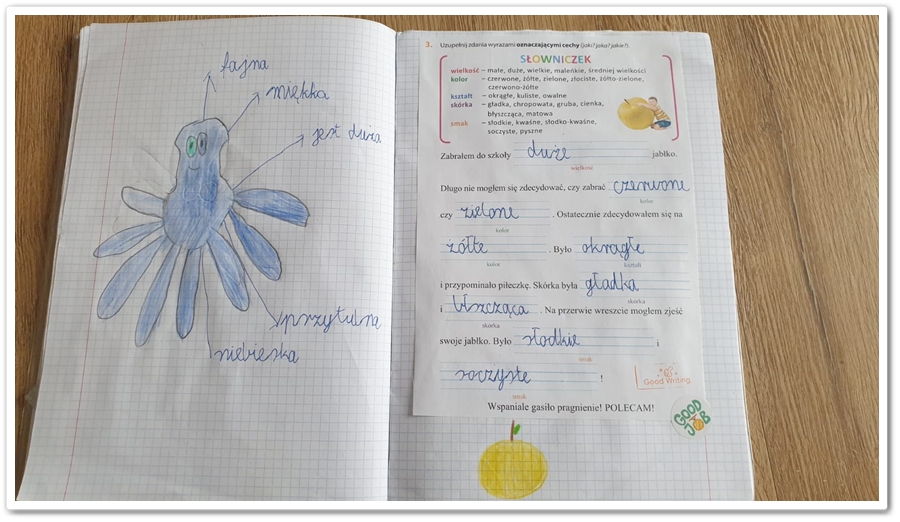 fajna
miękka
jest duża
przytulna
niebieska
3. Uzupełnij zdania wyrazami oznaczającymi cechy (jaki? jaka? jakie?).
SŁOWNICZEK
wielkość – małe, duże, wielkie, maleńkie, średniej wielkości
kolor – czerwone, żółte, zielone, złociste, żółto-zielone,
czerwono-żółte
kształt – okrągłe, kuliste, owalne
skórka – gładka, chropowata, gruba, cienka,
błyszcząca, matowa
smak – słodkie, kwaśne, słodko-kwaśne,
soczyste, pyszne
Zabrałem do szkoły duże jabłko.
wielkość
Długo nie mogłem się zdecydować, czy zabrać czerwone
kolor
czy zielone . Ostatecznie zdecydowałem się na
kolor
żółte . Było okrągłe
kolor kształt
i przypominało piłeczkę. Skórka była gładka
skórka
i błszcząca . Na przerwie wreszcie mogłem zjeść
skórka
swoje jabłko. Było słodkie i
smak
soczyste !
smak
Good Writing
Wspaniale gasiło pragnienie! POLECAM!
GOOD
JOB